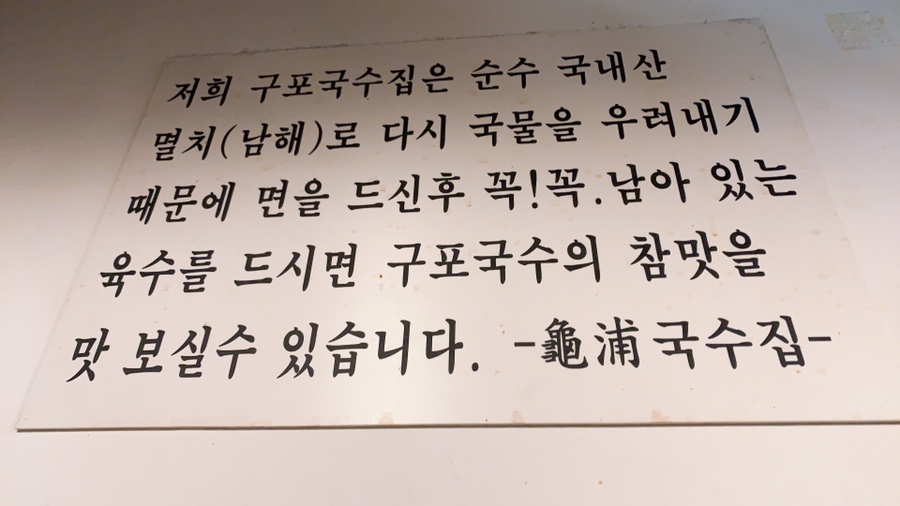 저희 구포국수집은 순수 국내산
멸치(남해)로 다시 국물을 우려내기
때문에 면을 드신후 꼭!꼭.남아 있는
육수를 드시면 구포국수의 참맛을
맛 보실수 있습니다. -龜浦국수집-